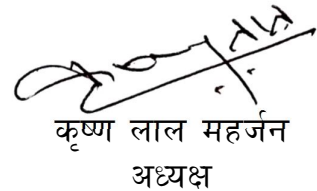 कृष्ण लाल महर्जन
अध्यक्ष